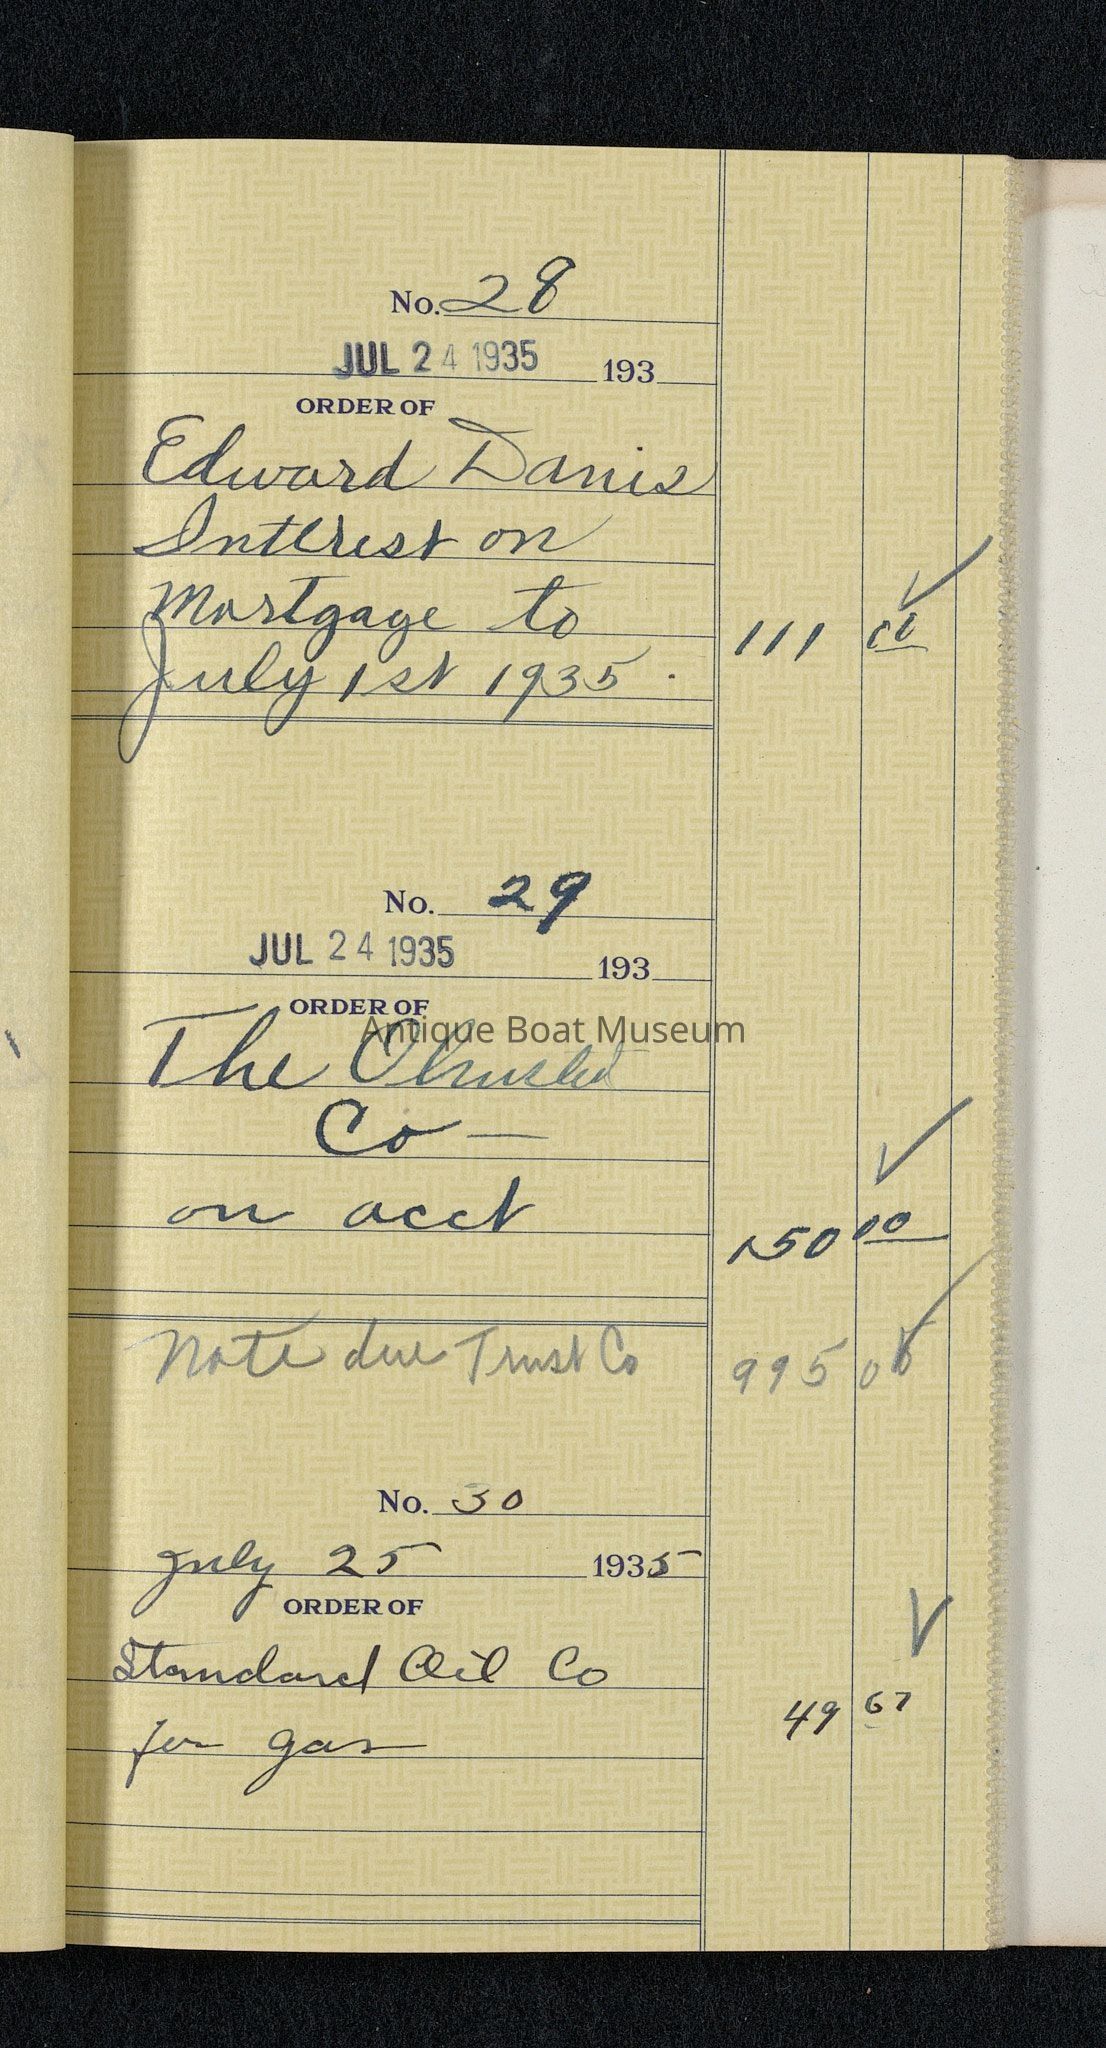 No. 28
JUL 24 1935 193
ORDER OF
Edward Danis
Interest on
Mortgage to
July 1st 1935.
111
No. 29
JUL 24 1935 193
ORDER OF
Antique Boat Museum
The Olmsted
Co —
on acct
150 00
Note due Trust Co 995 00
No. 30
July 25 1935
ORDER OF
Standard Oil Co
for gas 49 67